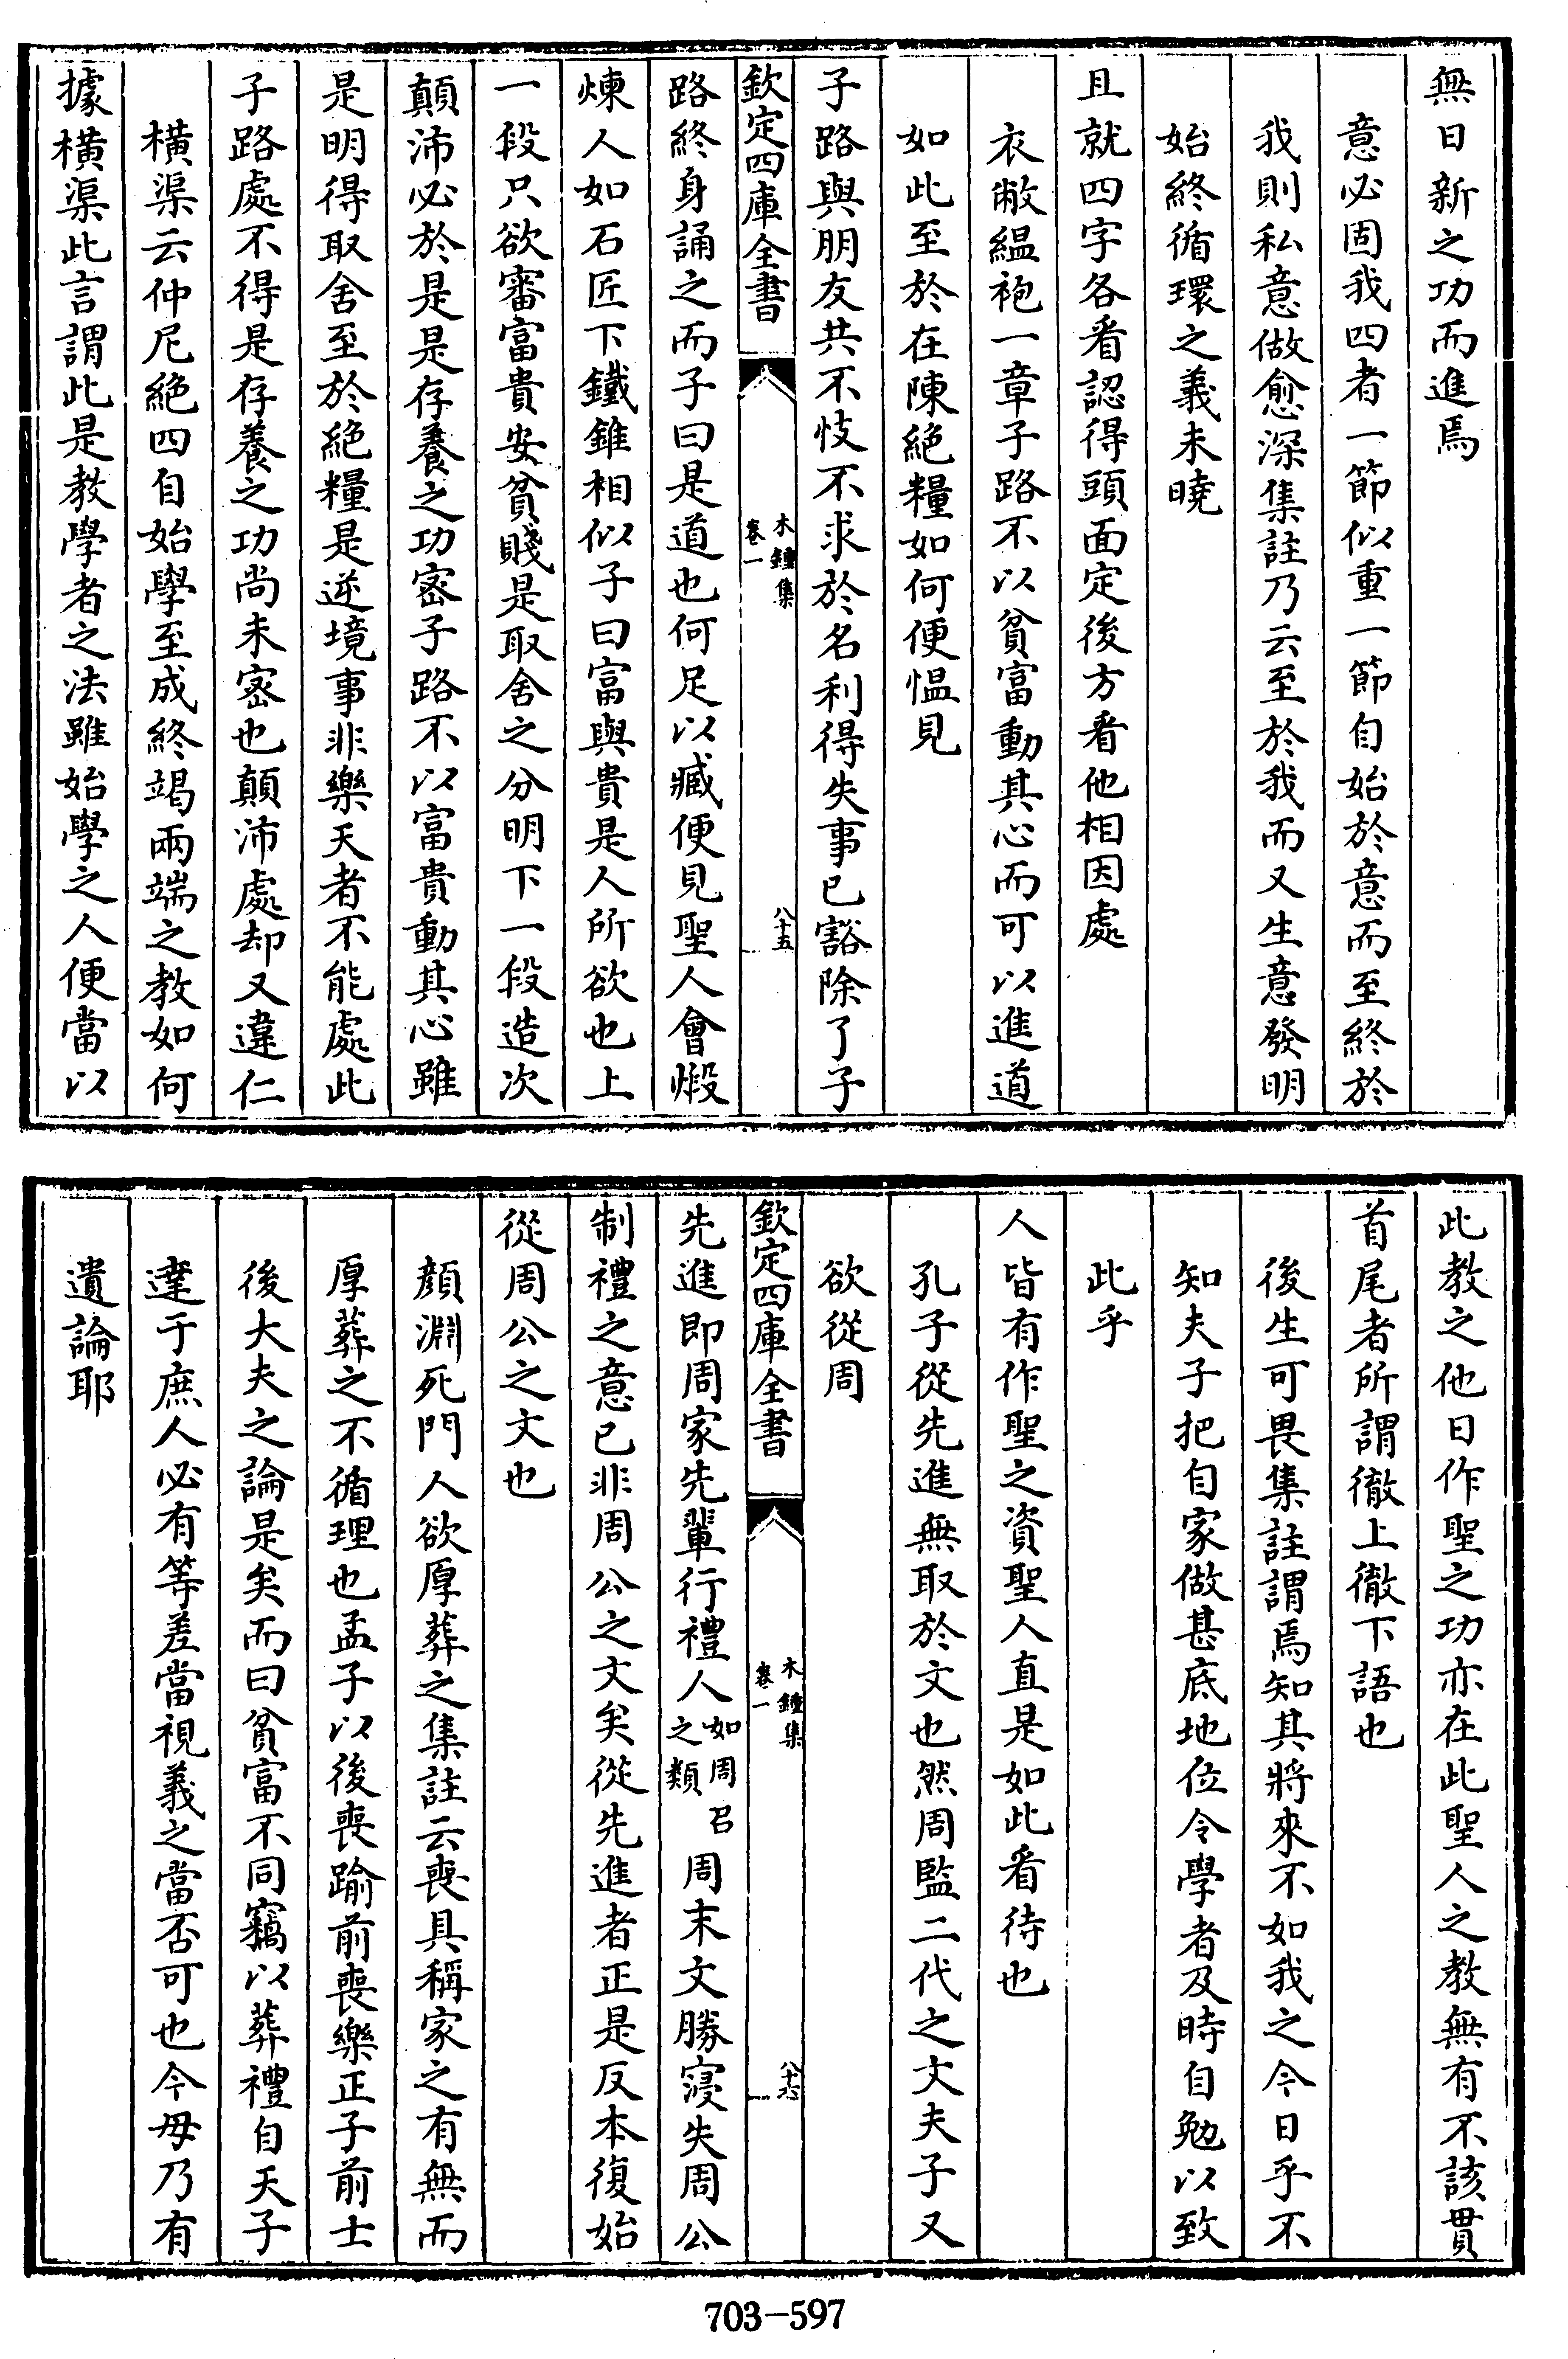 無日新之功而進焉
意必固我四者一節似重一節自始於意而至終於
我則私意做愈深集註乃云至於我而又生意發明
始終循環之義未曉
且就四字各看認得頭面定後方看他相因處
衣敝緼袍一章子路不以貧富動其心而可以進道
如此至於在陳絶糧如何便愠見
子路與朋友共不忮不求於名利得失事已豁除了子
欽定四庫全書
木鍾集
卷一
八十五
路終身誦之而子曰是道也何足以臧便見聖人會煅
煉人如石匠下鐵錐相似子曰富與貴是人所欲也上
一段只欲審富貴安貧賤是取舍之分明下一段造次
顛沛必於是是存養之功密子路不以富貴動其心雖
是明得取舍至於絶糧是逆境事非樂天者不能處此
子路處不得是存養之功尚未密也顛沛處却又違仁
橫渠云仲尼絶四自始學至成終竭兩端之教如何
據橫渠此言謂此是教學者之法雖始學之人便當以
此教之他日作聖之功亦在此聖人之教無有不該貫
首尾者所謂徹上徹下語也
後生可畏集註謂焉知其將來不如我之今日乎不
知夫子把自家做甚底地位令學者及時自勉以致
此乎
人皆有作聖之資聖人直是如此看待也
孔子從先進無取於文也然周監二代之文夫子又
欲從周
欽定四庫全書
木鍾集
卷一
八十六
先進即周家先輩行禮人如周召之類周末文勝寖失周公
制禮之意已非周公之文矣從先進者正是反本復始
從周公之文也
顔淵死門人欲厚葬之集註云喪具稱家之有無而
厚葬之不循理也孟子以後喪踰前喪樂正子前士
後大夫之論是矣而曰貧富不同竊以葬禮自天子
達于庶人必有等差當視義之當否可也今毋乃有
遺論耶
703-597